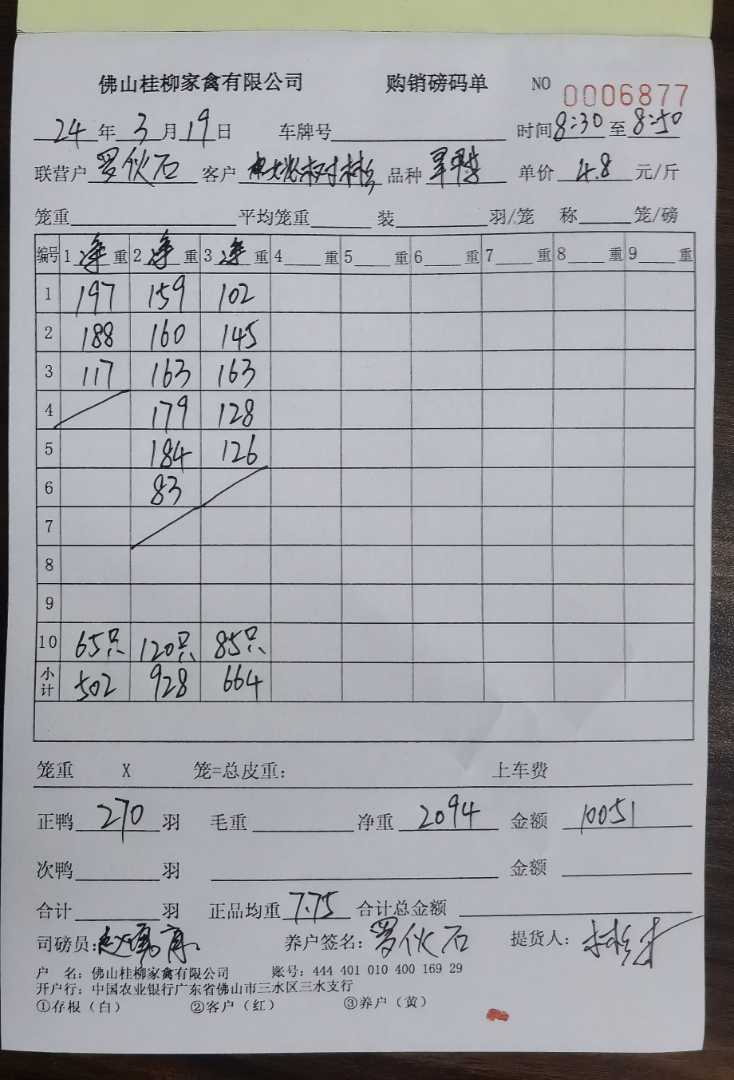 佛山桂柳家禽有限公司 购销磅码单 NO 0006877
24 年 3 月 19 日 车牌号 时间 8:30 至 8:50
联营户 罗伙石 客户 品种 单价 4.8 元/斤
笼重 平均笼重 装 羽/笼 称 笼/磅
编号 1 净 重 2 净 重 3 净 重 4 重 5 重 6 重 7 重 8 重 9 重
1 197 159 102
2 188 160 145
3 117 163 163
4 179 128
5 184 126
6 83
7
8
9
10 65只 120只 85只
小计 502 928 664
笼重 X 笼=总皮重: 上车费
正鸭 270 羽 毛重 净重 2094 金额 10051
次鸭 羽 金额
合计 羽 正品均重 7.75 合计总金额
司磅员: 养户签名: 罗伙石 提货人:
户 名: 佛山桂柳家禽有限公司 账号: 444 401 010 400 169 29
开户行: 中国农业银行广东省佛山市三水区三水支行
①存根(白) ②客户(红) ③养户(黄)